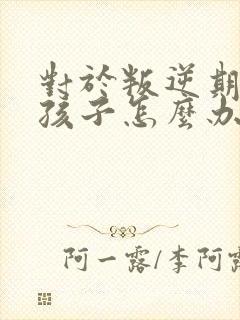 對於叛逆期
孩子怎麼办
阿一露/李阿露